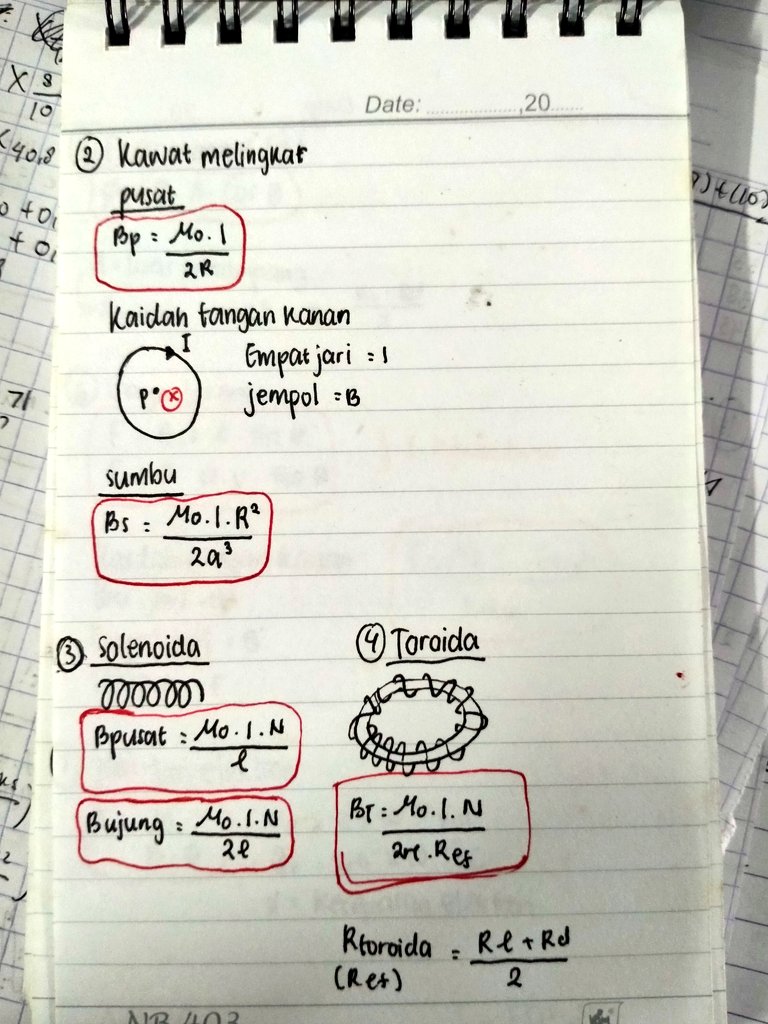 Date: ..............,20......
② Kawat melingkar
pusat
Bp = Mo.I / 2R
Kaidah tangan kanan
I
Empat jari = I
P• ⓧ
jempol = B
sumbu
Bs = Mo.I.R² / 2a³
③ Solenoida
Bpusat = Mo.I.N / l
Bujung = Mo.I.N / 2l
④ Toroida
BT = Mo.I.N / 2π.Ref
Rtoroida = Rl + Rd / 2
(Ref)
X 8
10
40,8